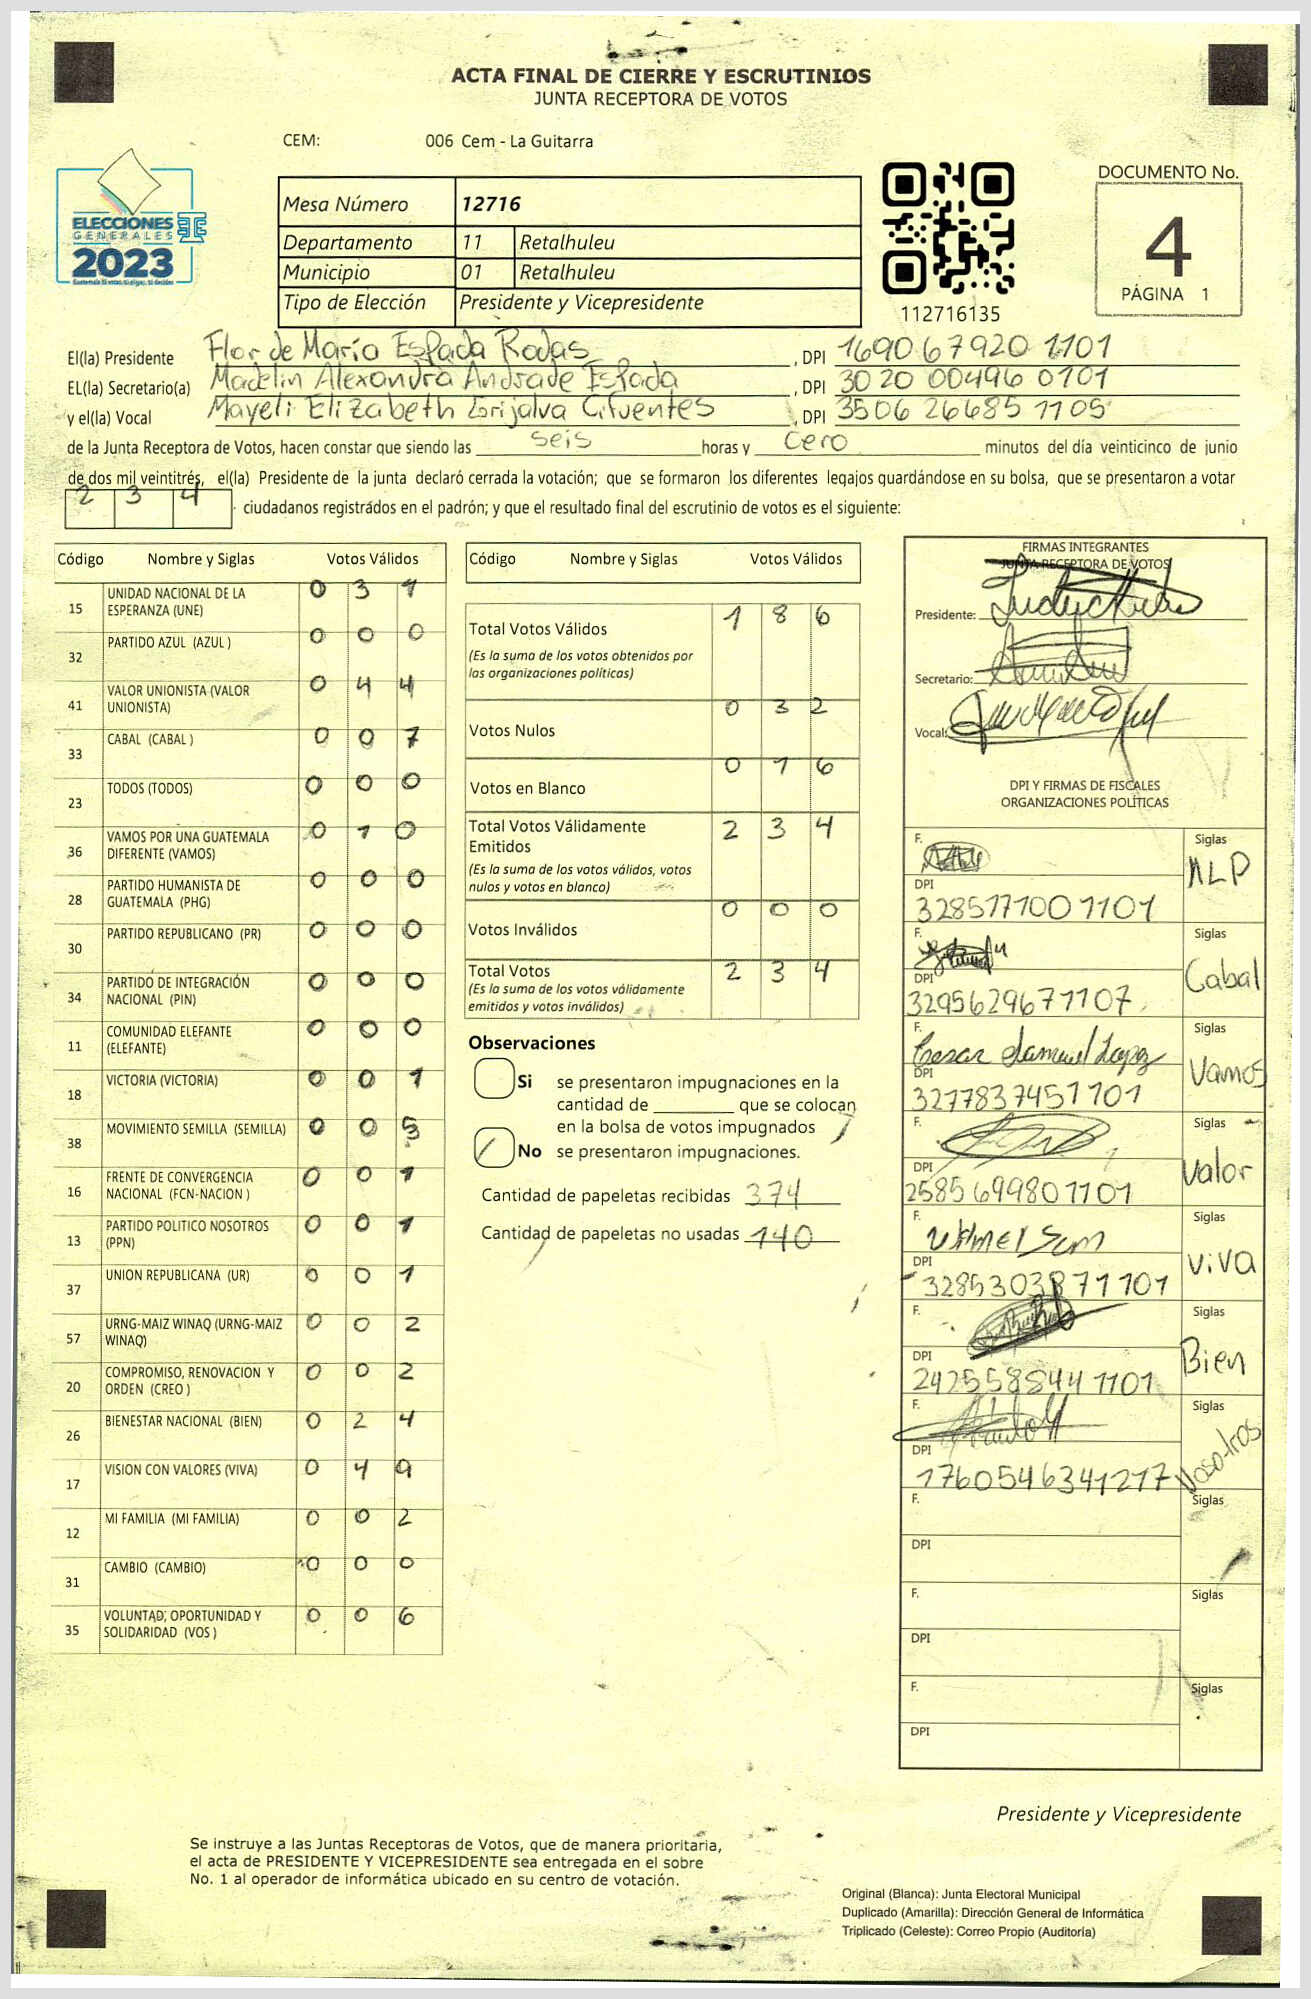 ACTA FINAL DE CIERRE Y ESCRUTINIOS
JUNTA RECEPTORA DE VOTOS
CEM: 006 Cem - La Guitarra
ELECCIONES
GENERALES
2023
Mesa Número 12716
Departamento 11 Retalhuleu
Municipio 01 Retalhuleu
Tipo de Elección Presidente y Vicepresidente
112716135
DOCUMENTO No.
4
PÁGINA 1
El(la) Presidente Flor de María Espada Rodas, DPI 1690 67920 1101
EL(la) Secretario(a) Madelin Alexandra Andrade Espada, DPI 3020 00496 0101
y el(la) Vocal Mayeli Elizabeth Grijalva Cifuentes, DPI 3506 26685 1105
de la Junta Receptora de Votos, hacen constar que siendo las seis horas y cero minutos del día veinticinco de junio
de dos mil veintitrés, el(la) Presidente de la junta declaró cerrada la votación; que se formaron los diferentes legajos guardándose en su bolsa, que se presentaron a votar
2 3 4 ciudadanos registrados en el padrón; y que el resultado final del escrutinio de votos es el siguiente:
Código Nombre y Siglas Votos Válidos
15 UNIDAD NACIONAL DE LA ESPERANZA (UNE) 0 3 1
32 PARTIDO AZUL (AZUL ) 0 0 0
41 VALOR UNIONISTA (VALOR UNIONISTA) 0 4 4
33 CABAL (CABAL ) 0 0 7
23 TODOS (TODOS) 0 0 0
36 VAMOS POR UNA GUATEMALA DIFERENTE (VAMOS) 0 1 0
28 PARTIDO HUMANISTA DE GUATEMALA (PHG) 0 0 0
30 PARTIDO REPUBLICANO (PR) 0 0 0
34 PARTIDO DE INTEGRACIÓN NACIONAL (PIN) 0 0 0
11 COMUNIDAD ELEFANTE (ELEFANTE) 0 0 0
18 VICTORIA (VICTORIA) 0 0 1
38 MOVIMIENTO SEMILLA (SEMILLA) 0 0 5
16 FRENTE DE CONVERGENCIA NACIONAL (FCN-NACION ) 0 0 1
13 PARTIDO POLITICO NOSOTROS (PPN) 0 0 1
37 UNION REPUBLICANA (UR) 0 0 1
57 URNG-MAIZ WINAQ (URNG-MAIZ WINAQ) 0 0 2
20 COMPROMISO, RENOVACION Y ORDEN (CREO ) 0 0 2
26 BIENESTAR NACIONAL (BIEN) 0 2 4
17 VISION CON VALORES (VIVA) 0 4 9
12 MI FAMILIA (MI FAMILIA) 0 0 2
31 CAMBIO (CAMBIO) 0 0 0
35 VOLUNTAD, OPORTUNIDAD Y SOLIDARIDAD (VOS ) 0 0 6
Código Nombre y Siglas Votos Válidos
Total Votos Válidos 1 8 6
(Es la suma de los votos obtenidos por
las organizaciones políticas)
Votos Nulos 0 3 2
Votos en Blanco 0 1 6
Total Votos Válidamente Emitidos 2 3 4
(Es la suma de los votos válidos, votos
nulos y votos en blanco)
Votos Inválidos 0 0 0
Total Votos 2 3 4
(Es la suma de los votos válidamente
emitidos y votos inválidos)
Observaciones
Si se presentaron impugnaciones en la
cantidad de ________ que se colocan
en la bolsa de votos impugnados
No se presentaron impugnaciones.
Cantidad de papeletas recibidas 374
Cantidad de papeletas no usadas 140
FIRMAS INTEGRANTES
JUNTA RECEPTORA DE VOTOS
Presidente:
Secretario:
Vocal:
DPI Y FIRMAS DE FISCALES
ORGANIZACIONES POLÍTICAS
F. Siglas MLP
DPI 3285171001101
F. Siglas Cabal
DPI 3295629671107
F. Cesar Samuel Lopez Siglas Vamos
DPI 3277837451101
F. Siglas Valor
DPI 2585699801101
F. Siglas viva
DPI 3285303871101
F. Siglas Bien
DPI 2425588441101
F. Siglas Nosotros
DPI 1760546341217
F. Siglas
DPI
F. Siglas
DPI
F. Siglas
DPI
Presidente y Vicepresidente
Se instruye a las Juntas Receptoras de Votos, que de manera prioritaria,
el acta de PRESIDENTE Y VICEPRESIDENTE sea entregada en el sobre
No. 1 al operador de informática ubicado en su centro de votación.
Original (Blanca): Junta Electoral Municipal
Duplicado (Amarilla): Dirección General de Informática
Triplicado (Celeste): Correo Propio (Auditoría)